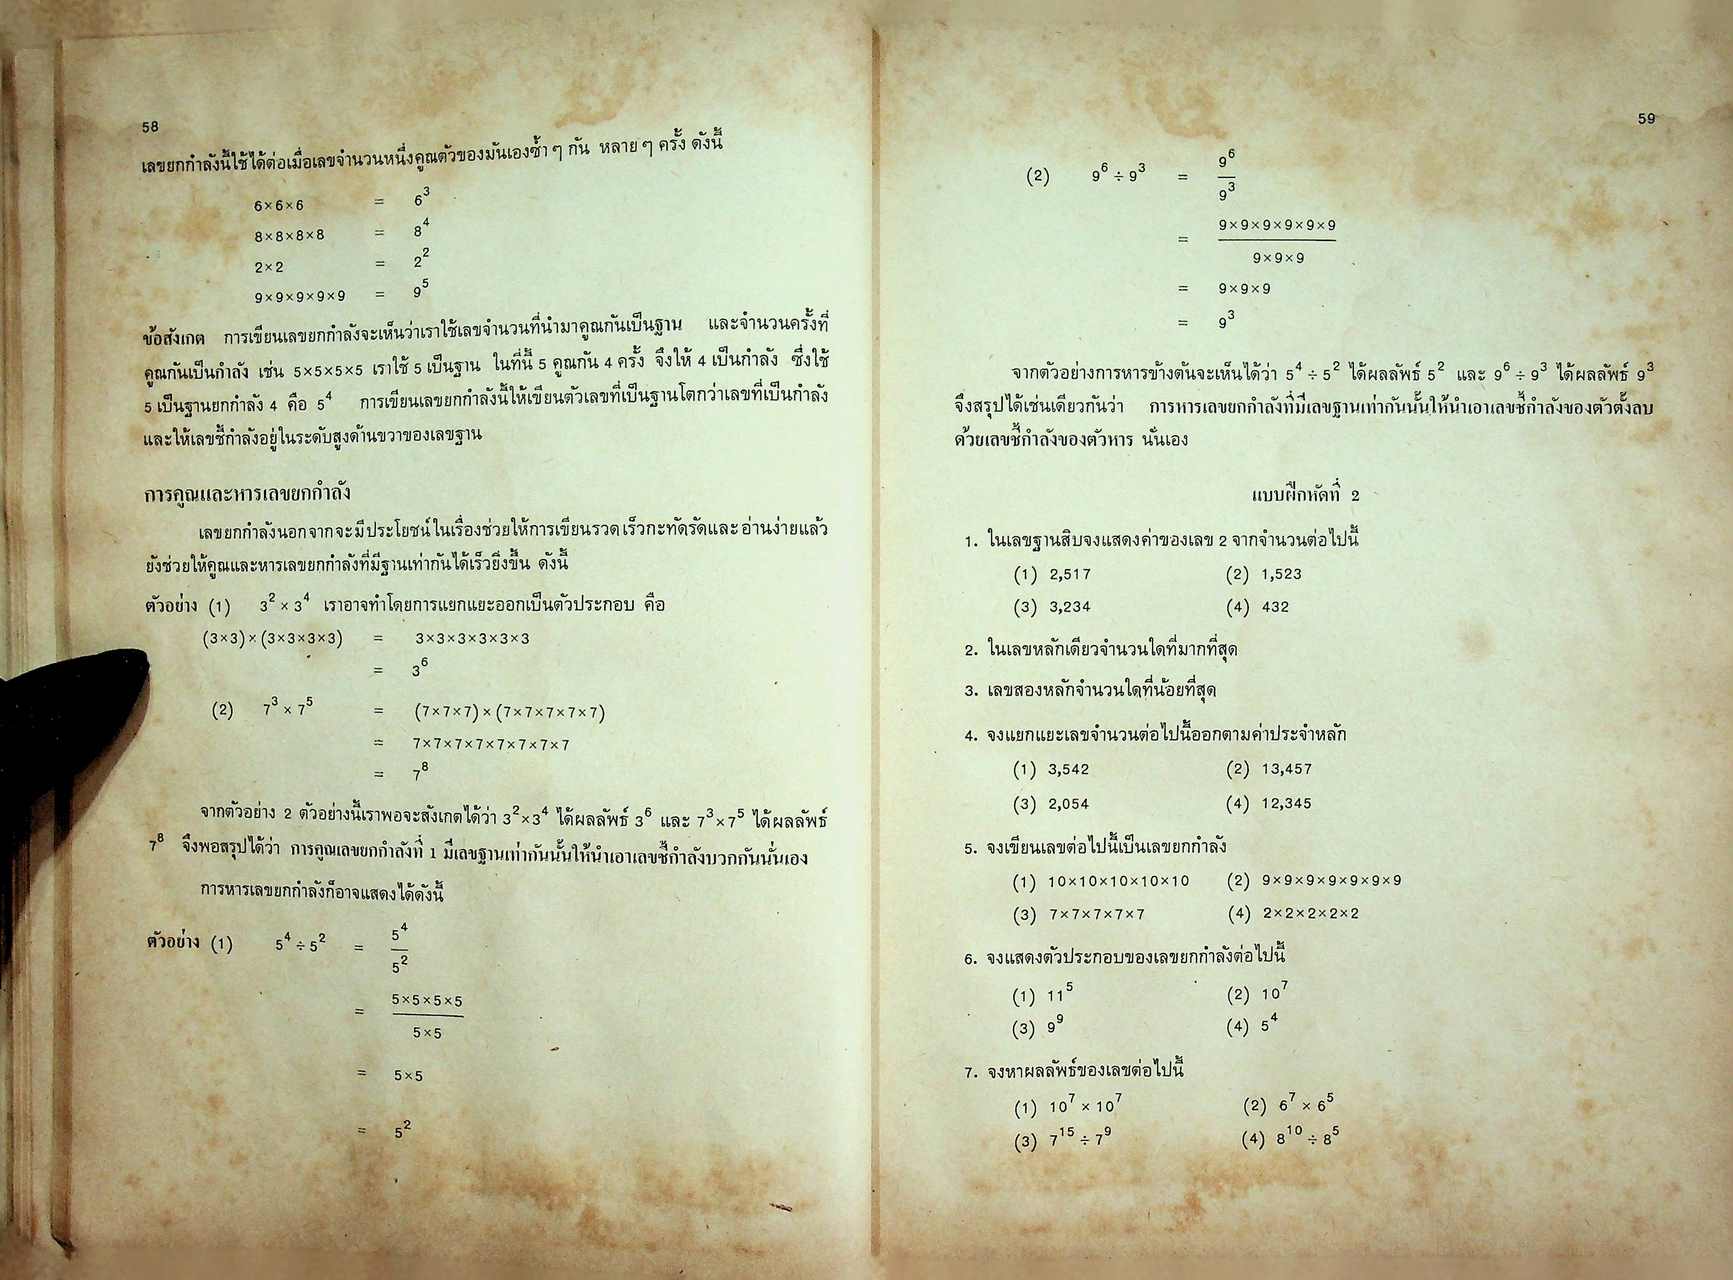 58
เลขยกกำลังนี้ใช้ได้ต่อเมื่อเลขจำนวนหนึ่งคูณตัวของมันเองซ้ำ ๆ กัน หลาย ๆ ครั้ง ดังนี้
6×6×6 = 6³
8×8×8×8 = 8⁴
2×2 = 2²
9×9×9×9×9 = 9⁵
ข้อสังเกต การเขียนเลขยกกำลังจะเห็นว่าเราใช้เลขจำนวนที่นำมาคูณกันเป็นฐาน และจำนวนครั้งที่
คูณกันเป็นกำลัง เช่น 5×5×5×5 เราใช้ 5 เป็นฐาน ในที่นี้ 5 คูณกัน 4 ครั้ง จึงให้ 4 เป็นกำลัง ซึ่งใช้
5 เป็นฐานยกกำลัง 4 คือ 5⁴ การเขียนเลขยกกำลังนี้ให้เขียนตัวเลขที่เป็นฐานโตกว่าเลขที่เป็นกำลัง
และให้เลขชี้กำลังอยู่ในระดับสูงด้านขวาของเลขฐาน
การคูณและหารเลขยกกำลัง
เลขยกกำลังนอกจากจะมีประโยชน์ในเรื่องช่วยให้การเขียนรวดเร็วกะทัดรัดและอ่านง่ายแล้ว
ยังช่วยให้คูณและหารเลขยกกำลังที่มีฐานเท่ากันได้เร็วยิ่งขึ้น ดังนี้
ตัวอย่าง (1) 3² × 3⁴ เราอาจทำโดยการแยกแยะออกเป็นตัวประกอบ คือ
(3×3)×(3×3×3×3) = 3×3×3×3×3×3
= 3⁶
(2) 7³ × 7⁵ = (7×7×7)×(7×7×7×7×7)
= 7×7×7×7×7×7×7×7
= 7⁸
จากตัวอย่าง 2 ตัวอย่างนี้เราพอจะสังเกตได้ว่า 3²×3⁴ ได้ผลลัพธ์ 3⁶ และ 7³×7⁵ ได้ผลลัพธ์
7⁸ จึงพอสรุปได้ว่า การคูณเลขยกกำลังที่ 1 มีเลขฐานเท่ากันนั้นให้นำเอาเลขชี้กำลังบวกกันนั่นเอง
การหารเลขยกกำลังก็อาจแสดงได้ดังนี้
ตัวอย่าง (1) 5⁴ ÷ 5² = 5⁴
5²
= 5×5×5×5
5×5
= 5×5
= 5²
59
(2) 9⁶ ÷ 9³ = 9⁶
9³
= 9×9×9×9×9×9
9×9×9
= 9×9×9
= 9³
จากตัวอย่างการหารข้างต้นจะเห็นได้ว่า 5⁴ ÷ 5² ได้ผลลัพธ์ 5² และ 9⁶ ÷ 9³ ได้ผลลัพธ์ 9³
จึงสรุปได้เช่นเดียวกันว่า การหารเลขยกกำลังที่มีเลขฐานเท่ากันนั้นให้นำเอาเลขชี้กำลังของตัวตั้งลบ
ด้วยเลขชี้กำลังของตัวหาร นั่นเอง
แบบฝึกหัดที่ 2
1. ในเลขฐานสิบจงแสดงค่าของเลข 2 จากจำนวนต่อไปนี้
(1) 2,517 (2) 1,523
(3) 3,234 (4) 432
2. ในเลขหลักเดียวจำนวนใดที่มากที่สุด
3. เลขสองหลักจำนวนใดที่น้อยที่สุด
4. จงแยกแยะเลขจำนวนต่อไปนี้ออกตามค่าประจำหลัก
(1) 3,542 (2) 13,457
(3) 2,054 (4) 12,345
5. จงเขียนเลขต่อไปนี้เป็นเลขยกกำลัง
(1) 10×10×10×10×10 (2) 9×9×9×9×9×9×9
(3) 7×7×7×7×7 (4) 2×2×2×2×2
6. จงแสดงตัวประกอบของเลขยกกำลังต่อไปนี้
(1) 11⁵ (2) 10⁷
(3) 9⁹ (4) 5⁴
7. จงหาผลลัพธ์ของเลขต่อไปนี้
(1) 10⁷ × 10⁷ (2) 6⁷ × 6⁵
(3) 7¹⁵ ÷ 7⁹ (4) 8¹⁰ ÷ 8⁵